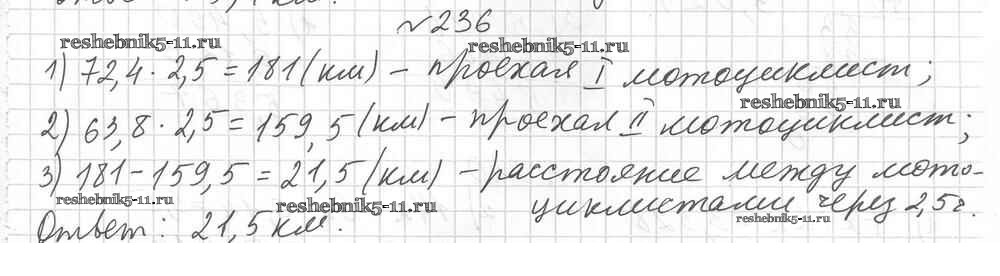 №236
reshebnik5-11.ru reshebnik5-11.ru
1) 72,4 · 2,5 = 181 (км) – проехал I мотоциклист;
reshebnik5-11.ru
2) 63,8 · 2,5 = 159,5 (км) – проехал II мотоциклист;
3) 181 – 159,5 = 21,5 (км) – расстояние между мото-
reshebnik5-11.ru reshebnik5-11.ru циклистами через 2,5 ч.
reshebnik5-11.ru
Ответ: 21,5 км.